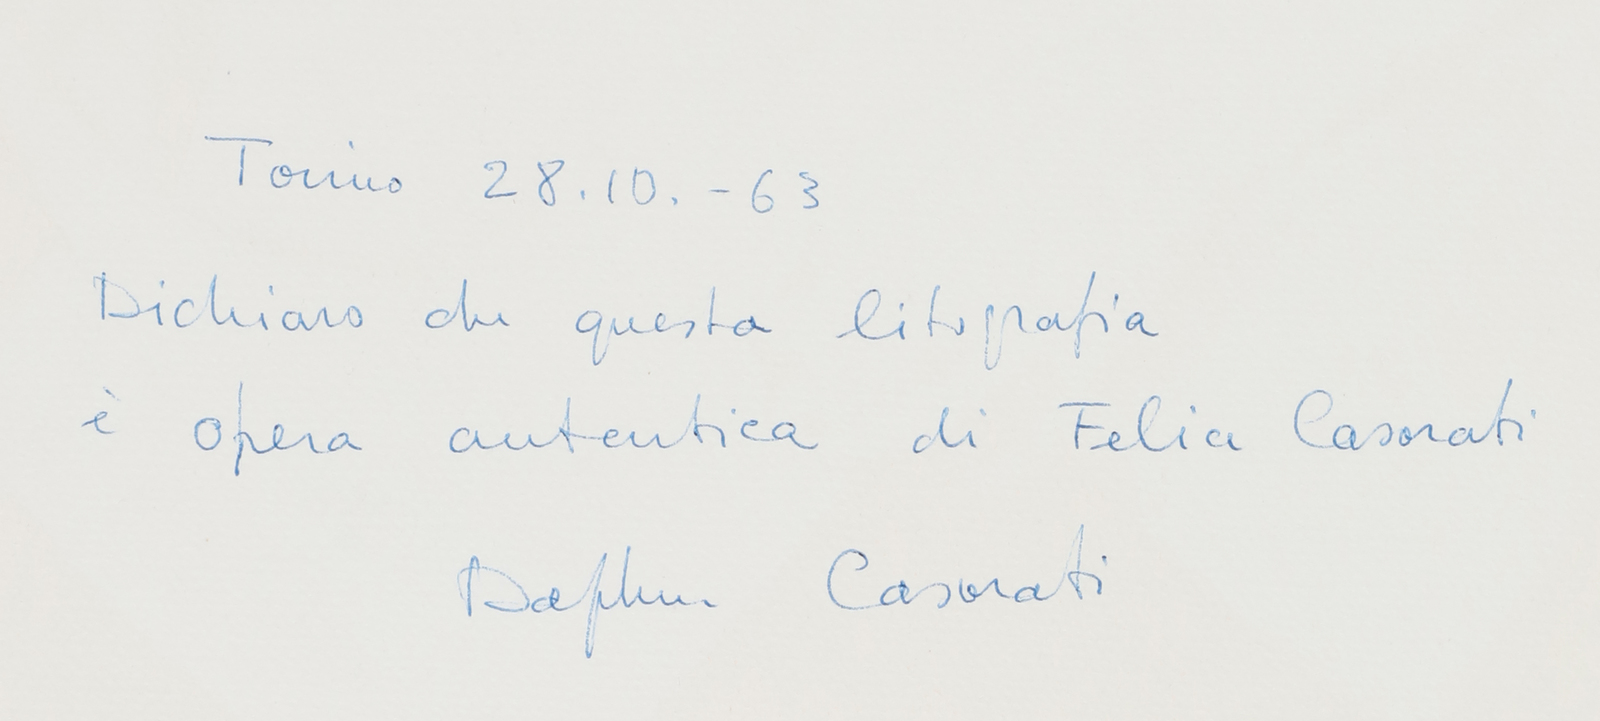 Torino 28.10.-63
Dichiaro che questa litografia
è opera autentica di Felice Casorati
Daphne Casorati